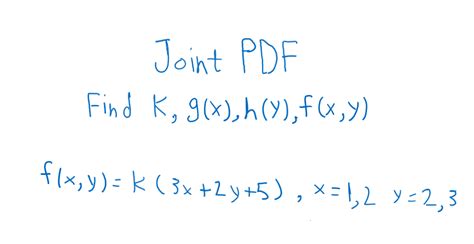 Joint PDF
Find K, g(x), h(y), f(x,y)
f(x,y)= k (3x+2y+5) , x=1,2 y=2,3